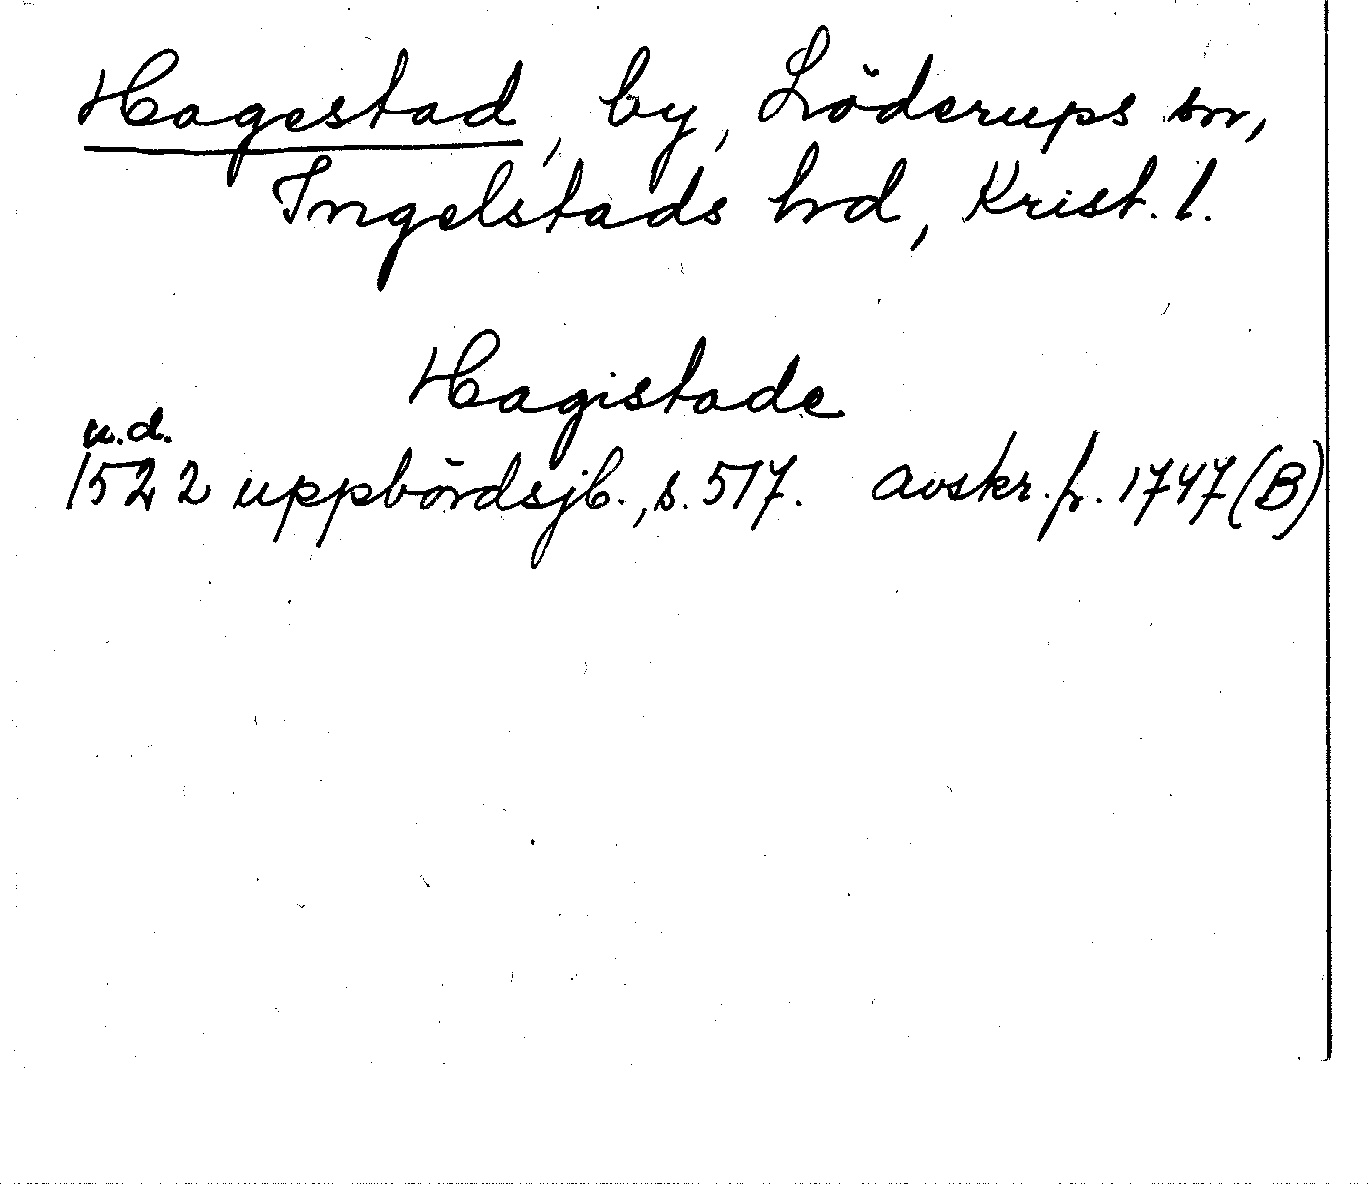 Hagestad, by, Löderups sn,
Ingelstads hrd, Krist. l.
Hagistade
u.d.
1522 uppbördsjb., s. 517. avskr. fr. 1747 (B)